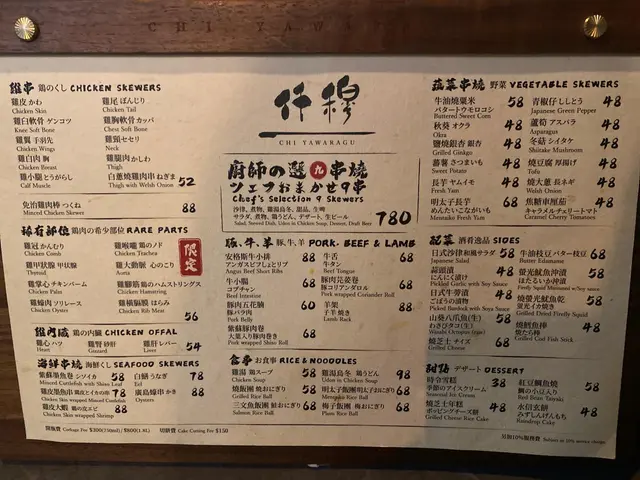 CHI YAWARAGU
仟穆
CHI YAWARAGU
雞串 鶏のくし CHICKEN SKEWERS
雞皮 かわ
Chicken Skin
雞白軟骨 ゲンコツ
Knee Soft Bone
雞翼 手羽先
Chicken Wings
雞白肉 胸
Chicken Breast
雞小腿 とうがらし
Calf Muscle
雞尾 ぼんじり
Chicken Tail
雞胸軟骨 カッパ
Chest Soft Bone
雞頸 せせり
Neck
雞腿肉 かしわ
Thigh
白蔥燒雞肉串 ねぎま
Thigh with Welsh Onion 52
免治雞肉棒 つくね 88
Minced Chicken Skewer
稀有部位 鶏肉の希少部位 RARE PARTS
限定
雞冠 かんむり
Chicken Comb
雞甲狀腺 甲状腺
Thyroid
雞掌心 チキンパーム
Chicken Palm
雞蠔肉 ソリレース
Chicken Oyster
雞喉嚨 鶏のノド
Chicken Trachea
雞大動脈 心のこり
Aorta
雞髀筋 鶏のハムストリングス
Chicken Hamstring
雞橫膈膜 はらみ
Chicken Rib Meat 56
雞內臟 鶏の内臓 CHICKEN OFFAL
雞心 ハツ
Heart
雞腎 砂肝
Gizzard
雞肝 レバー 54
Liver
海鮮串燒 海鮮くし SEAFOOD SKEWERS
58
Minced Cuttlefish with Shiso Leaf
白鱔 うなぎ 78
Eel
78
Chicken Skin wrapped Minced Cuttlefish
廣島蠔串 かき 88
Oysters
88
Chicken Skin wrapped Shrimp
廚師の選 九 串燒
シェフおまかせ9串
Chef's Selection 9 Skewers
沙律, 煮物, 雞湯烏冬, 甜品, 生啤
サラダ, 煮物, 鶏うどん, デザート, 生ビール
Salad, Stewed Dish, Udon in Chicken Soup, Dessert, Draft Beer
780
豚.牛.羊 豚,牛,羊 PORK. BEEF & LAMB
安格斯牛小排 88
アンガスビフしょとリブ
Angus Beef Short Ribs
牛小腸 68
コプチャン
Beef Intestine
豚肉五花腩 60
豚バラ肉
Pork Belly
紫蘇豚肉卷 68
大葉入り豚肉巻き
Pork wrapped Shiso Roll
牛舌 68
牛タン
Beef Tongue
豚肉芫荽卷 68
豚コリアンダロル
Pork wrapped Coriander Roll
羊架 88
子羊焼き
Lamb Rack
食事 お食事 RICE & NOODLES
雞湯 鶏スープ 58
Chicken Soup
燒飯團 焼おにぎり 58
Grilled Rice Ball
三文魚飯團 鮭おにぎり 68
Salmon Rice Ball
雞湯烏冬 鶏うどん 98
Udon in Chicken Soup
明太子飯團 明太子おにぎり 68
Mentaiko Rice Ball
梅子飯團 梅おにぎり 68
Plum Rice Ball
蔬菜串燒 野菜 VEGETABLE SKEWERS
牛油燒粟米 58
バタートウモロコシ
Buttered Sweet Corn
秋葵 オクラ 48
Okra
鹽燒銀杏 銀杏 48
Grilled Ginkgo
蕃薯 さつまいも 48
Sweet Potato
長芋 ヤムイモ 48
Fresh Yam
明太子長芋 68
めんたいこながいも
Mentaiko Fresh Yam
青椒仔 ししとう 48
Japanese Green Pepper
蘆筍 アスパラ 48
Asparagus
冬菇 シイタケ 48
Shiitake Mushroom
燒豆腐 厚揚げ 48
Tofu
燒大蔥 長ネギ 48
Welsh Onion
焦糖車厘茄 48
キャラメルチェリートマト
Caramel Cherry Tomatoes
配菜 酒肴逸品 SIDES
日式沙律 和風サラダ 58
Japanese Salad
蒜頭漬 48
にんにく漬け
Pickled Garlic with Soy Sauce
日式牛蒡漬 48
ごぼうの漬物
Pickled Burdock with Soya Sauce
山葵八爪魚(生) 58
わさびタコ(生)
Wasabi Octopus (raw)
燒芝士 チイズ 68
Grilled Cheese
牛油枝豆 バター枝豆 68
Butter Edamame
螢光魷魚沖漬 58
ほたるいか沖漬
Firefly Squid Marinated w/Soy sauce
燒螢光魷魚乾 58
蛍光イカ焼き
Grilled Dried Firefly Squid
燒鱈魚棒 48
焼たら棒
Grilled Cod Fish Stick
甜物 デザート DESSERT
時令雪糕 38
季節のアイスクリーム
Seasonal Ice Cream
燒芝士年糕 48
Grilled Cheese Rice Cake
紅豆鯛魚燒 58
鯛の小豆入り
Red Bean Taiyaki
水信玄餅 48
みずしんげんもち
Raindrop Cake
開瓶費 Corkage Fee $300(750mL) / $600(1.8L) 切餅費 Cake Cutting Fee $150
另加10%服務費 Subject to 10% service charge